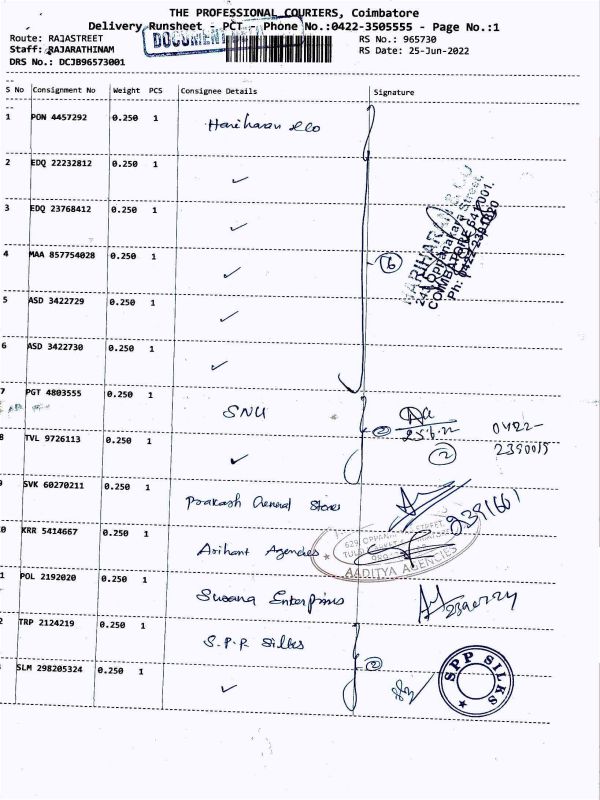 THE PROFESSIONAL COURIERS, Coimbatore
Delivery Runsheet - PCT - Phone No.:0422-3505555 - Page No.:1
Route: RAJASTREET
DOCUMENT
RS No.: 965730
Staff: RAJARATHINAM
RS Date: 25-Jun-2022
DRS No.: DCJB96573001
S No Consignment No Weight PCS Consignee Details Signature
1 PON 4457292 0.250 1 Hariharan & Co
2 EDQ 22232812 0.250 1 ✓
3 EDQ 23768412 0.250 1 ✓
4 MAA 857754028 0.250 1 ✓ 6
HARIHARAN & CO
COIMBATORE 641 001.
5 ASD 3422729 0.250 1 ✓
6 ASD 3422730 0.250 1 ✓
7 PGT 4803555 0.250 1 SNU 2
8 TVL 9726113 0.250 1 ✓ 2
0422-
9 SVK 60270211 0.250 1 Prakash General Stores 2391661
0 KRR 5414667 0.250 1 Arihant Agencies
AADITYA AGENCIES
1 POL 2192020 0.250 1 Enterprises
2 TRP 2124219 0.250 1 S.P.R Silks 2
SLM 298205324 0.250 1 ✓
SPP SILKS